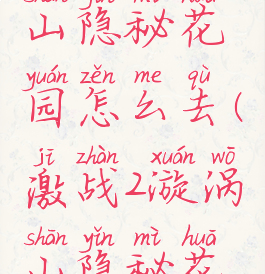 山隐秘花
yuán zěn me qù
园怎么去（
jī zhàn xuán wō
激战2漩涡
shān yǐn mì huā
山隐秘花